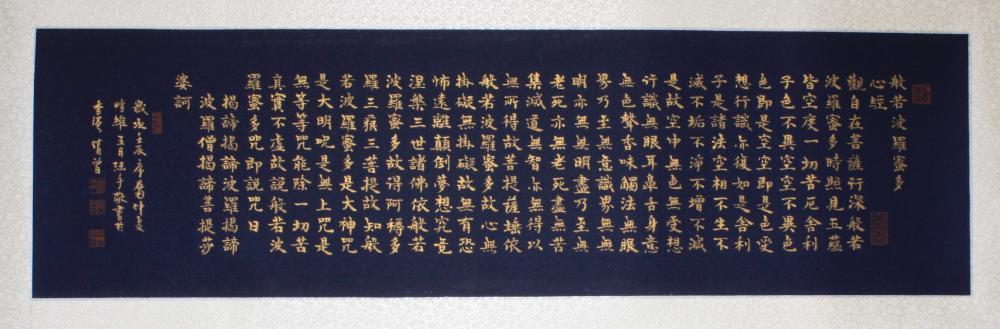 般若波羅蜜多
心經
觀自在菩薩行深般若
波羅蜜多時照見五蘊
皆空度一切苦厄舍利
子色不異空空不異色
色即是空空即是色受
想行識亦復如是舍利
子是諸法空相不生不
滅不垢不淨不增不減
是故空中無色無受想
行識無眼耳鼻舌身意
無色聲香味觸法無眼
界乃至無意識界無無
明亦無無明盡乃至無
老死亦無老死盡無苦
集滅道無智亦無得以
無所得故菩提薩埵依
般若波羅蜜多故心無
掛礙無掛礙故無有恐
怖遠離顛倒夢想究竟
涅槃三世諸佛依般若
波羅蜜多故得阿耨多
羅三藐三菩提故知般
若波羅蜜多是大神咒
是大明咒是無上咒是
無等等咒能除一切苦
真實不虛故說般若波
羅蜜多咒即說咒曰
揭諦揭諦波羅揭諦
波羅僧揭諦菩提莎
婆訶
歲次壬辰
敬書於